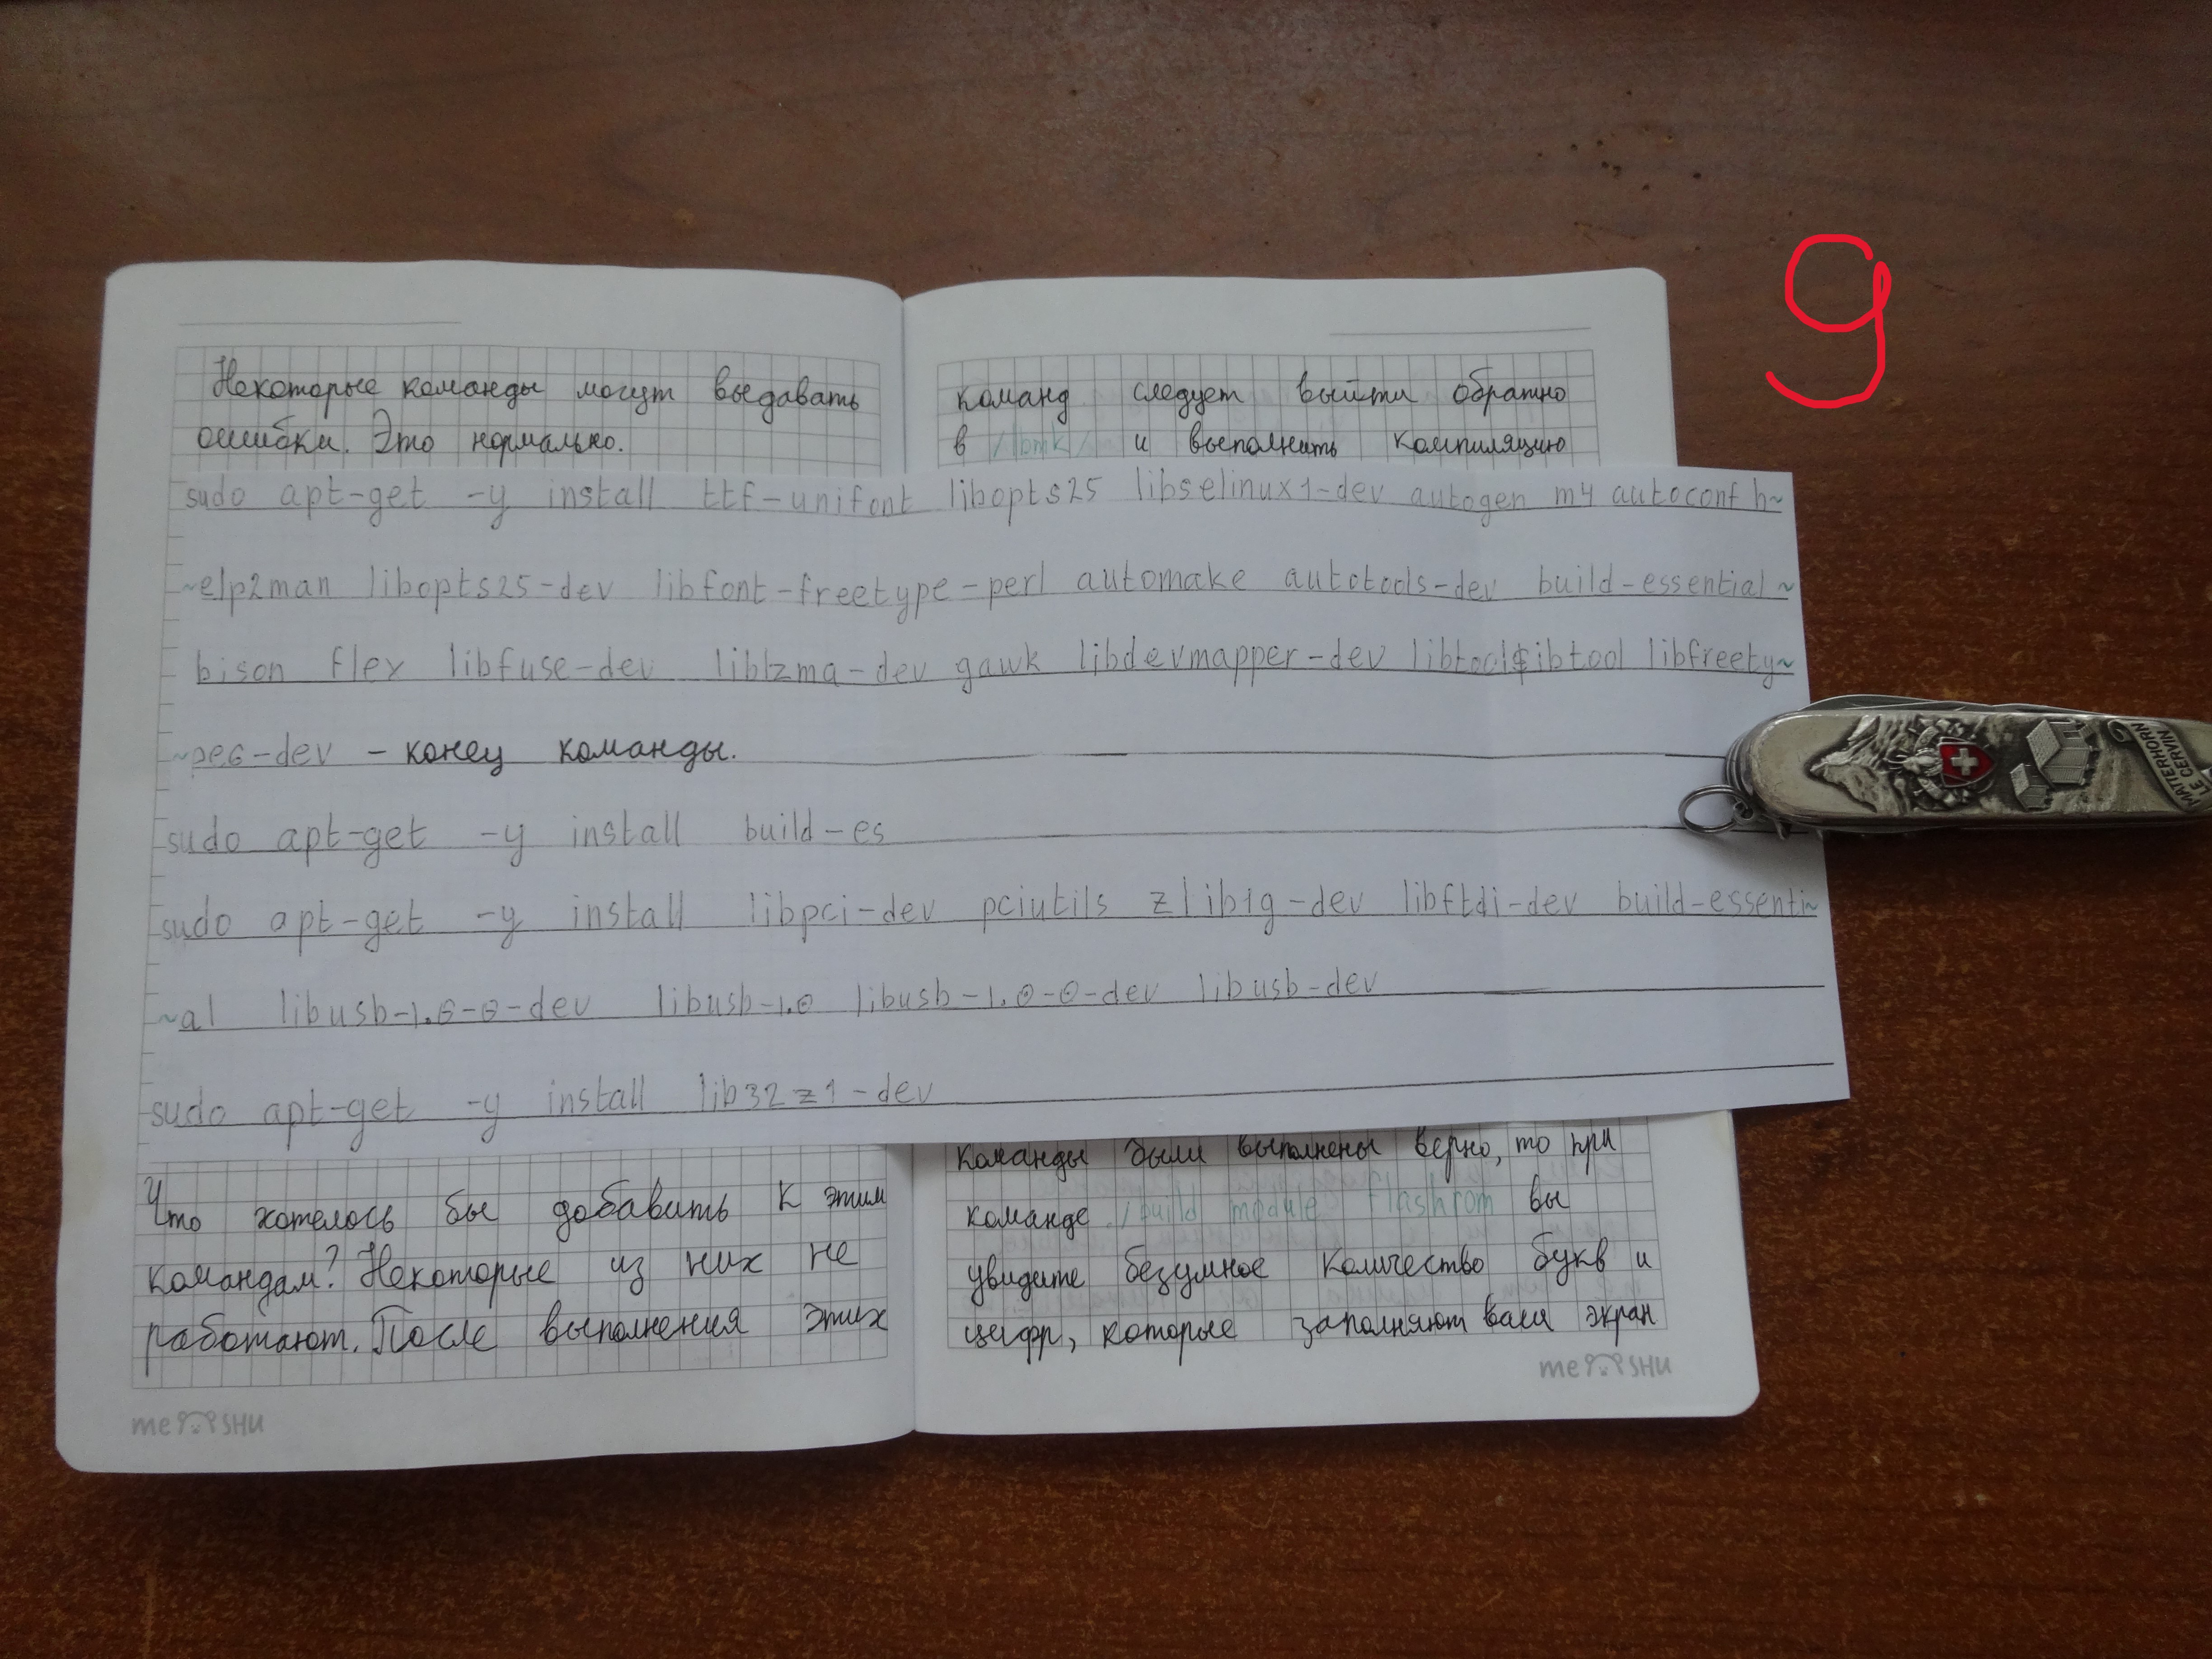 9
Некоторые команды могут выдавать
ошибки. Это нормально.
sudo apt-get -y install ttf-unifont libopts25 libselinux1-dev autogen m4 autoconf h~
~elp2man libopts25-dev libfont-freetype-perl automake autotools-dev build-essential~
bison flex libfuse-dev liblzma-dev gawk libdevmapper-dev libtool libfreety~
~pe6-dev - конец команды.
sudo apt-get -y install build-es
sudo apt-get -y install libpci-dev pciutils zlib1g-dev libftdi-dev build-essenti~
~al libusb-1.0-0-dev libusb-1.0 libusb-1.0-0-dev libusb-dev
sudo apt-get -y install lib32z1-dev
Что хотелось бы добавить к этим
командам? Некоторые из них не
работают. После выполнения этих
me SHU
команд следует выйти обратно
в /lbmk/ и выполнить компиляцию
команды были выполнены верно, то при
команде ./build module flashrom вы
увидите безумное количество букв и
цифр, которые заполняют ваш экран
me SHU
MATTERHORN
LE CERVIN